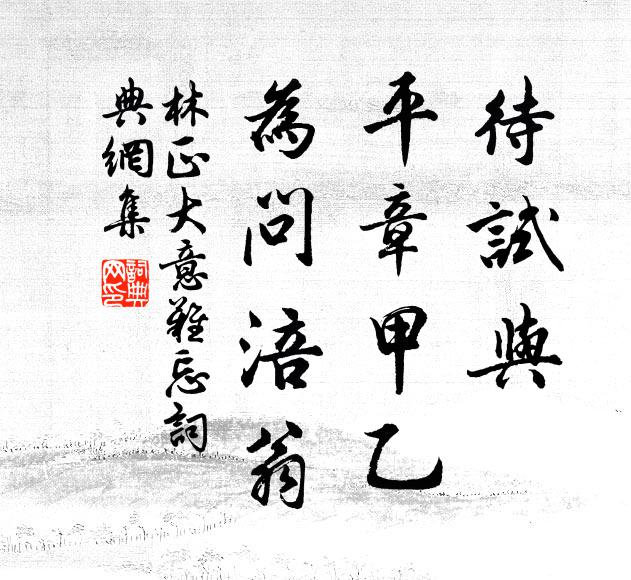 待試與
平章甲乙
為問涪翁
林正大意難忘詞
典網集
詞典
网印